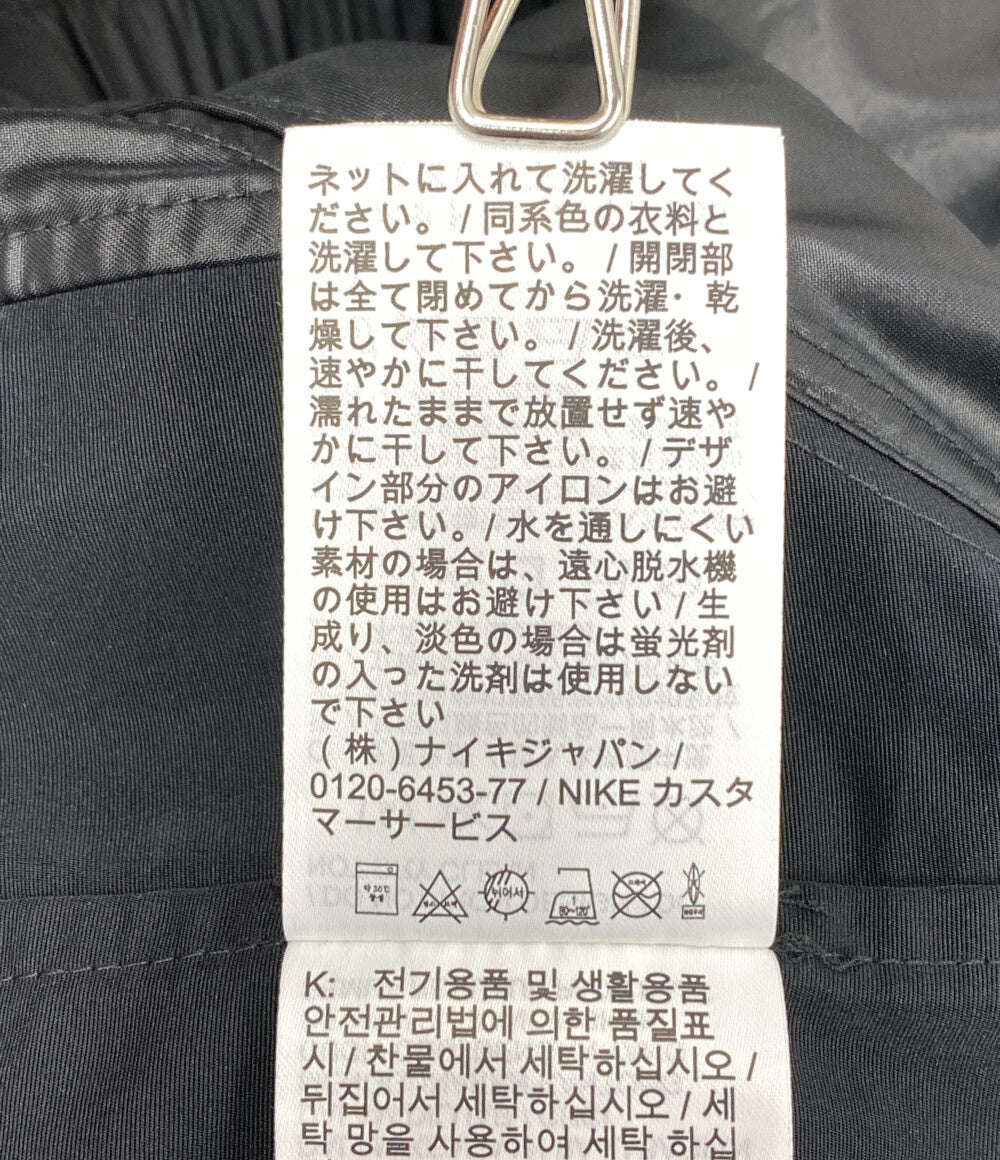 ネットに入れて洗濯してく
ださい。 / 同系色の衣料と
洗濯して下さい。 / 開閉部
は全て閉めてから洗濯・乾
燥して下さい。 / 洗濯後、
速やかに干してください。 /
濡れたままで放置せず速や
かに干して下さい。 / デザ
イン部分のアイロンはお避
け下さい。/ 水を通しにくい
素材の場合は、遠心脱水機
の使用はお避け下さい / 生
成り、淡色の場合は蛍光剤
の入った洗剤は使用しない
で下さい
(株)ナイキジャパン /
0120-6453-77 / NIKE カスタ
マーサービス
약 30℃ 뉘어서 1 80~120℃
K: 전기용품 및 생활용품
안전관리법에 의한 품질표
시 / 찬물에서 세탁하십시오 /
뒤집어서 세탁하십시오 / 세
탁 망을 사용하여 세탁 하십